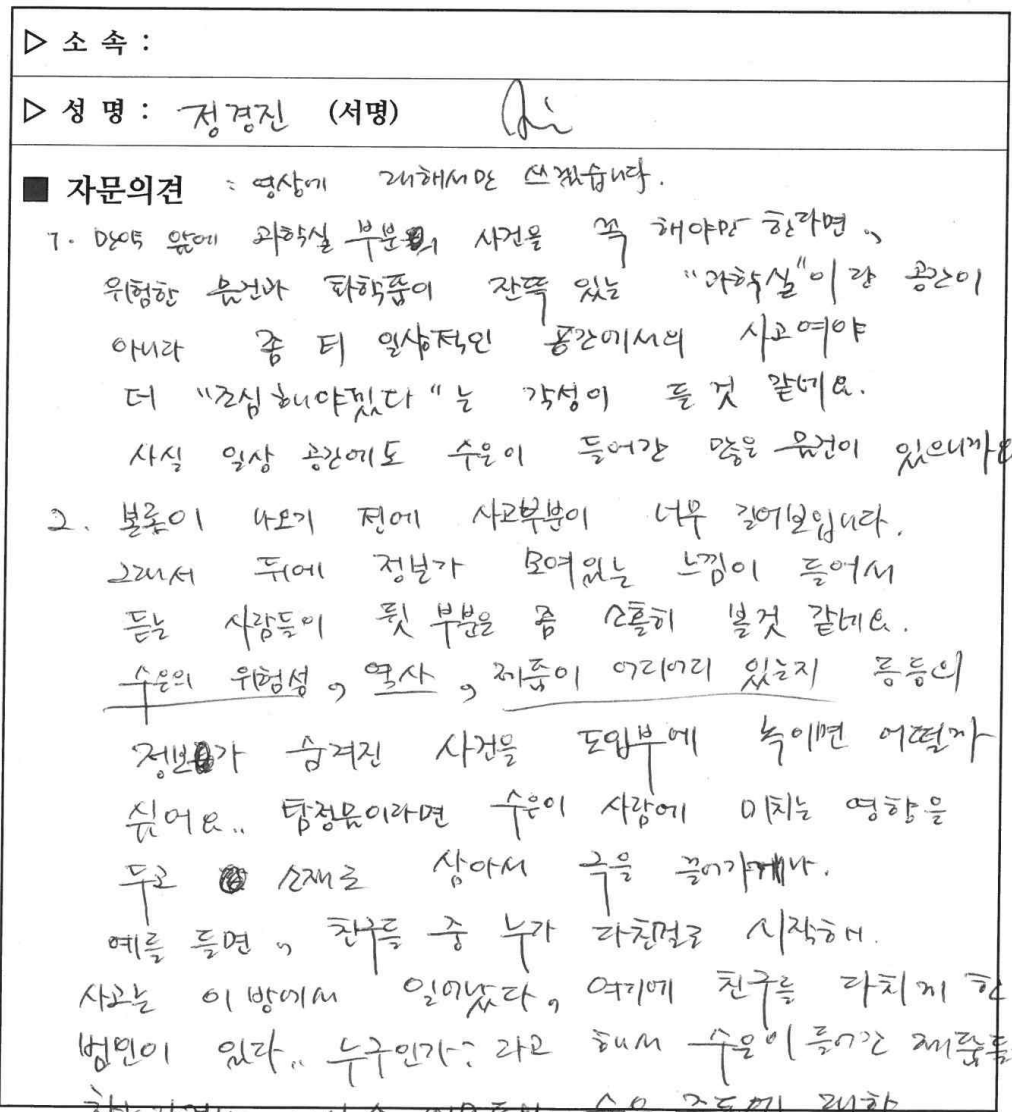 ▷ 소 속 :
▷ 성 명 : 정경진 (서명)
■ 자문의견 : 영상에 대해서만 쓰겠습니다.
1. 만약 앞에 과학실 부분의 사건을 꼭 해야만 한다면,
위험한 물건과 화학품이 잔뜩 있는 "과학실"이란 공간이
아니라 좀 더 일상적인 공간에서의 사고여야
더 "조심해야겠다"는 각성이 들 것 같네요.
사실 일상 공간에도 수은이 들어간 많은 물건이 있으니까요
2. 본론이 나오기 전에 사고부분이 너무 길어보입니다.
그래서 뒤에 정보가 모여있는 느낌이 들어서
듣는 사람들이 뒷 부분을 좀 소홀히 볼것 같네요.
수은의 위험성, 역사, 제품이 어디어디 있는지 등등의
정보가 숨겨진 사건을 도입부에 녹이면 어떨까
싶어요.. 탐정물이라면 수은이 사람에 미치는 영향을
두고 소재로 삼아서 극을 끌어가거나.
예를 들면, 친구들 중 누가 다친걸로 시작해.
사고는 이 방에서 일어났다, 여기에 친구를 다치게 한
범인이 있다.. 누구인가? 라고 해서 수은이 들어간 제품들
수은 중독에 대한